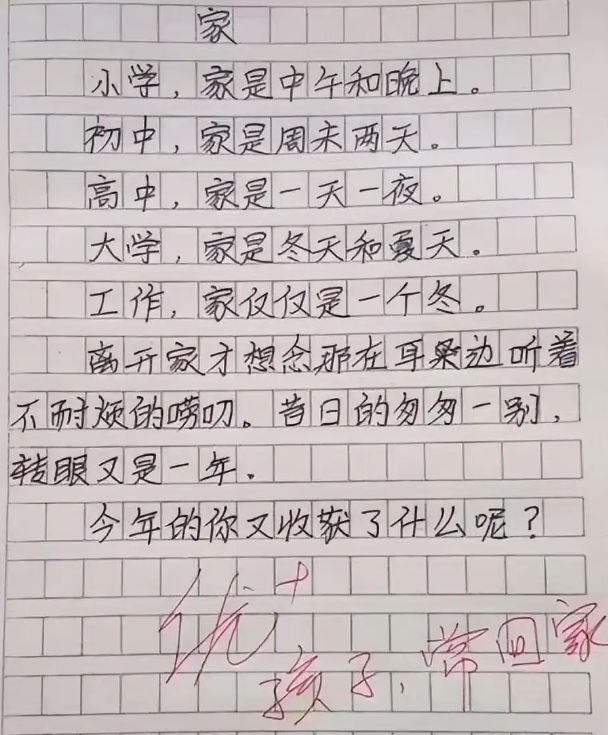 家
小学，家是中午和晚上。
初中，家是周末两天。
高中，家是一天一夜。
大学，家是冬天和夏天。
工作，家仅仅是一个冬。
离开家才想念那在耳朵边听着
不耐烦的唠叨。昔日的匆匆一别，
转眼又是一年.
今年的你又收获了什么呢？
优+
孩子，常回家